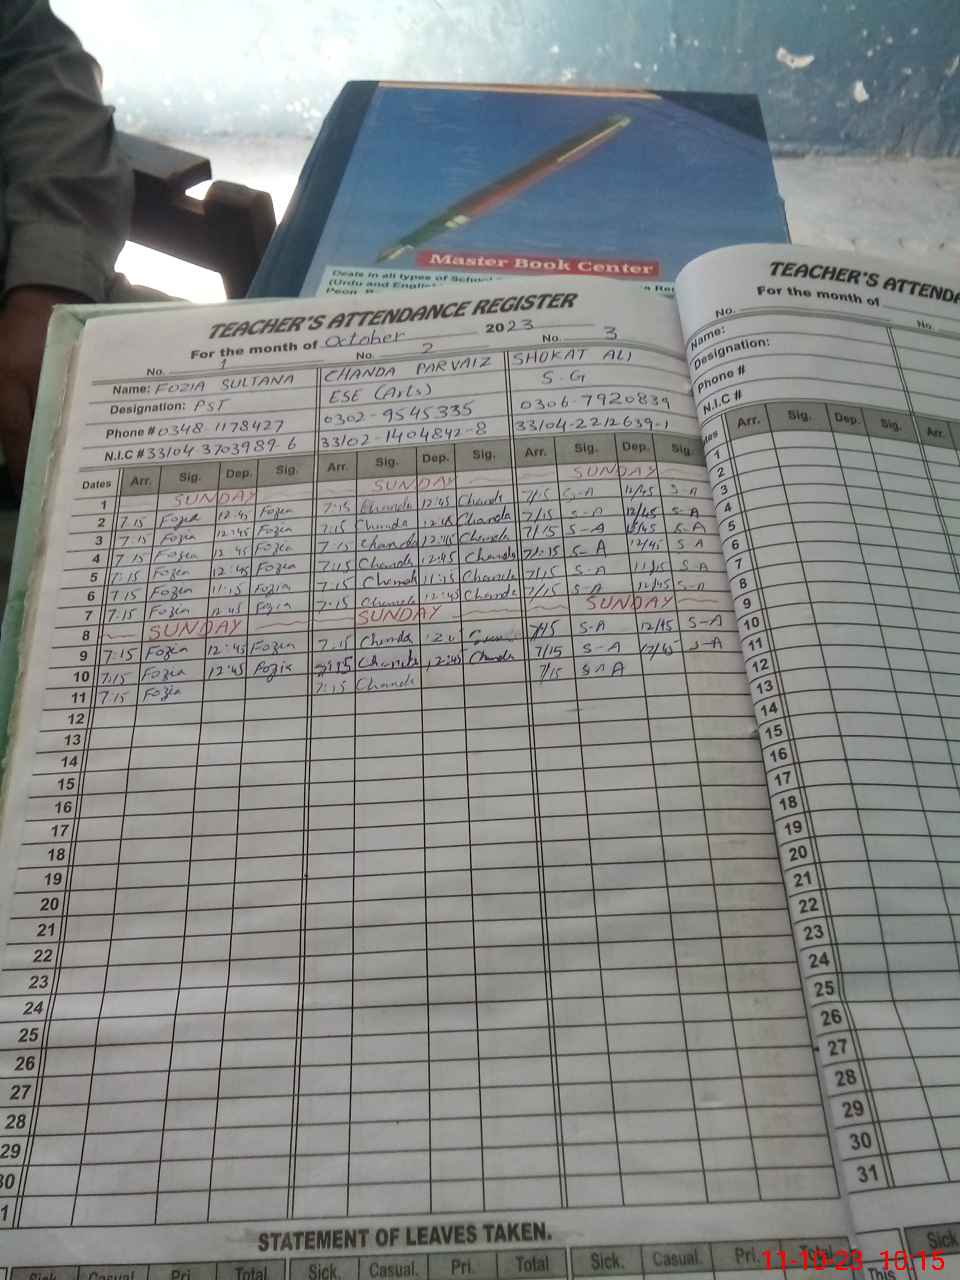 Master Book Center
Deals in all types of School
(Urdu and English
TEACHER'S ATTENDANCE REGISTER
For the month of October 2023
No. 1 No. 2 No. 3
Name: FOZIA SULTANA CHANDA PARVAIZ SHOKAT ALI
Designation: PST ESE (Arts) S.G
Phone # 0348-1178427 0302-9545335 0306-7920839
N.I.C # 33104 3703989-6 33102-1404842-8 33104-2212639-1
Dates Arr. Sig. Dep. Sig. Arr. Sig. Dep. Sig. Arr. Sig. Dep. Sig.
1 SUNDAY SUNDAY SUNDAY
2 7:15 Fozia 12:45 Fozia 7:15 Chanda 12:45 Chanda 7/15 S-A 12/45 S-A
3 7:15 Fozia 12:45 Fozia 7:15 Chanda 12:45 Chanda 7/15 S-A 12/45 S-A
4 7:15 Fozia 12:45 Fozia 7:15 Chanda 12:45 Chanda 7/15 S-A 12/45 S-A
5 7:15 Fozia 12:45 Fozia 7:15 Chanda 12:45 Chanda 7/15 S-A 12/45 S-A
6 7:15 Fozia 11:15 Fozia 7:15 Chanda 11:15 Chanda 7/15 S-A 11/15 S-A
7 7:15 Fozia 12:45 Fozia 7:15 Chanda 12:45 Chanda 7/15 S-A 12/45 S-A
8 SUNDAY SUNDAY SUNDAY
9 7:15 Fozia 12:45 Fozia 7:15 Chanda S-A 12/45 S-A
10 7:15 Fozia 12:45 Fozia 7:15 Chanda 12:45 Chanda 7/15 S-A 12/45 S-A
11 7:15 Fozia 7:15 Chanda 7/15 S-A
12
13
14
15
16
17
18
19
20
21
22
23
24
25
26
27
28
29
30
31
STATEMENT OF LEAVES TAKEN.
Sick. Casual. Pri. Total Sick. Casual. Pri. Total Sick. Casual. Pri. Total
TEACHER'S ATTENDA
For the month of
No. No.
Name:
Designation:
Phone #
N.I.C #
Arr. Sig. Dep. Sig. Arr.
1
2
3
4
5
6
7
8
9
10
11
12
13
14
15
16
17
18
19
20
21
22
23
24
25
26
27
28
29
30
31
Sick
This
11-10-23 10:15